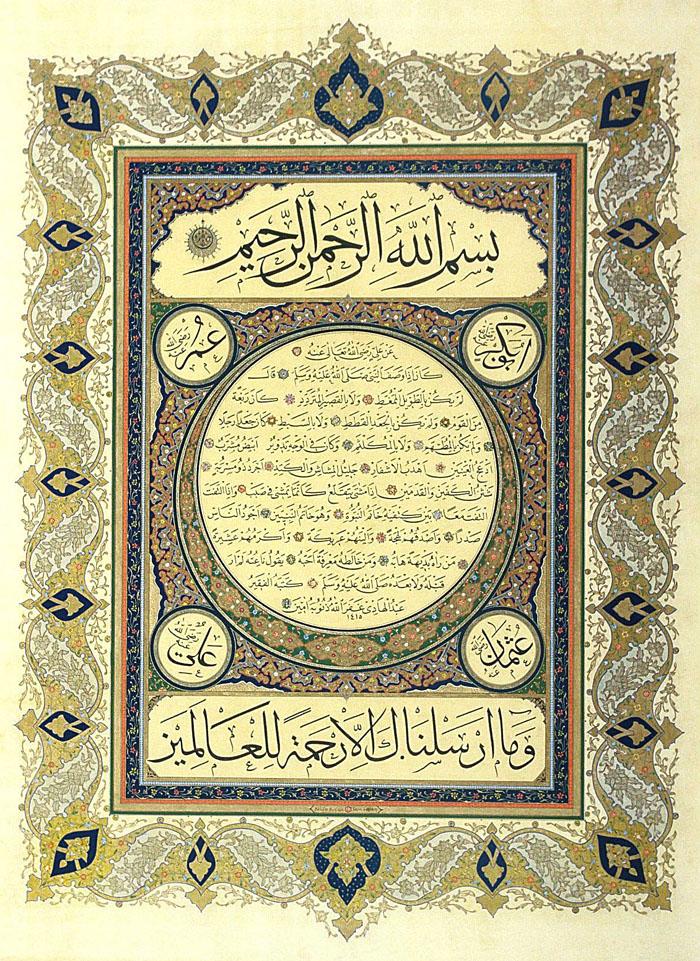 بِسْمِ اللّٰهِ الرَّحْمٰنِ الرَّحِيمِ
ابو بكر رضي الله عنه
عمر رضي الله عنه
عن علي رضي الله تعالى عنه
كان اذا وصف النبي صلى الله عليه وسلم قال
لم يكن بالطويل الممغط ولا بالقصير المتردد كان ربعة
من القوم ولم يكن بالجعد القطط ولا بالسبط كان جعدا رجلا
ولم يكن بالمطهم ولا بالمكلثم وكان في الوجه تدوير ابيض مشرب
ادعج العينين اهدب الاشفار جليل المشاش والكتد اجرد ذو مسربة
شثن الكفين والقدمين اذا مشى يتقلع كانما يمشي في صبب واذا التفت
التفت معا بين كتفيه خاتم النبوة وهو خاتم النبيين اجود الناس
صدرا واصدقهم لهجة والينهم عريكة واكرمهم عشيرة
من راه بديهة هابه ومن خالطه معرفة احبه يقول ناعته لم ار
قبله ولا بعده مثله صلى الله عليه وسلم كتبه الفقير
عبد الهادي غفر الله ذنوبه امين
١٤١٥
عثمان رضي الله عنه
علي رضي الله عنه
وَمَا اَرْسَلْنَاكَ اِلَّا رَحْمَةً لِلْعَالَمِينَ